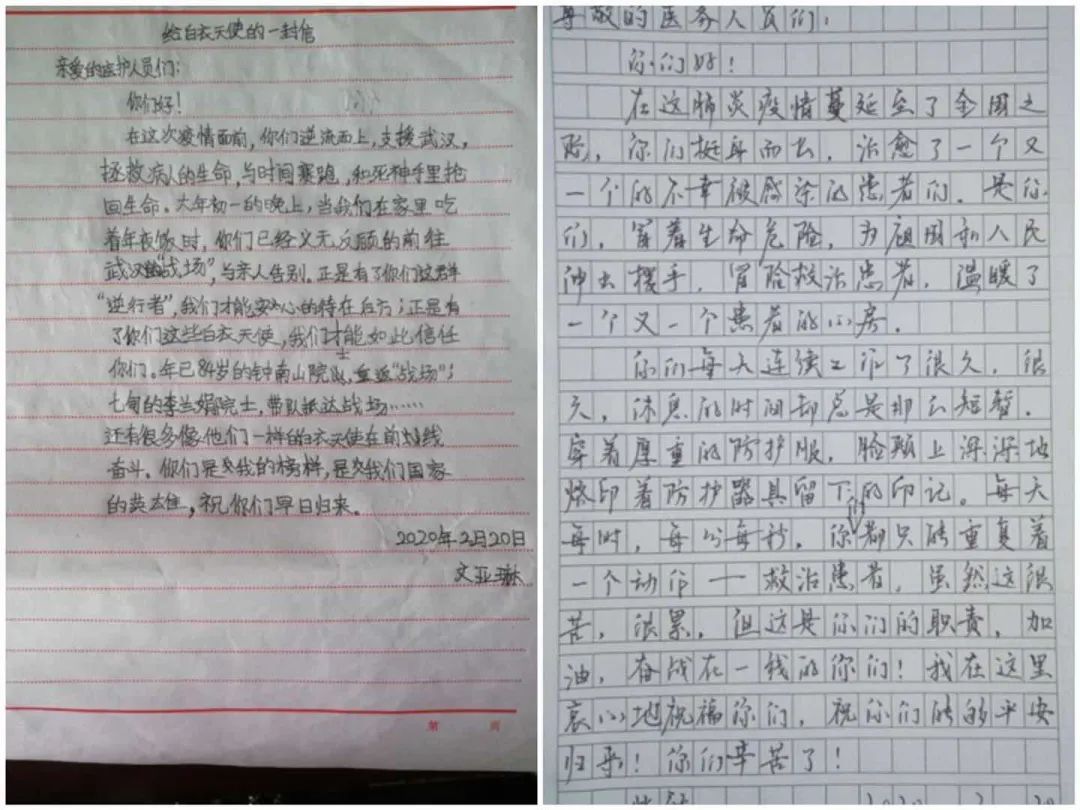 给白衣天使的一封信
亲爱的医护人员们：
你们好！
在这次疫情面前，你们逆流而上，支援武汉，
拯救病人的生命，与时间赛跑，和死神手里抢
回生命。大年初一的晚上，当我们在家里吃
着年夜饭时，你们已经义无反顾的前往
武汉"战场"，与亲人告别。正是有了你们这群
"逆行者"，我们才能安心的待在后方；正是有
了你们这些白衣天使，我们才能如此信任
你们。年已84岁的钟南山院士，重返"战场"；
七旬的李兰娟院士，带队抵达战场……
还有很多像他们一样的白衣天使在前线
奋斗。你们是我的榜样，是我们国家
的英雄，祝你们早日归来。
2020年2月20日
文亚琳
第 页
尊敬的医务人员们：
你们好！
在这肺炎疫情蔓延至了全国之
际，你们挺身而出，治愈了一个又
一个的不幸被感染的患者们。是你
们，冒着生命危险，为祖国和人民
伸出援手，冒险救治患者，温暖了
一个又一个患者的心房。
你们每天连续工作了很久，很
久，休息的时间却总是那么短暂。
穿着厚重的防护服，脸颊上深深地
烙印着防护器具留下的印记。每天
每时，每分每秒，你们都只能重复着
一个动作——救治患者，虽然这很
苦，很累，但这是你们的职责，加
油，奋战在一线的你们！我在这里
衷心地祝福你们，祝你们能够平安
归来！你们辛苦了！